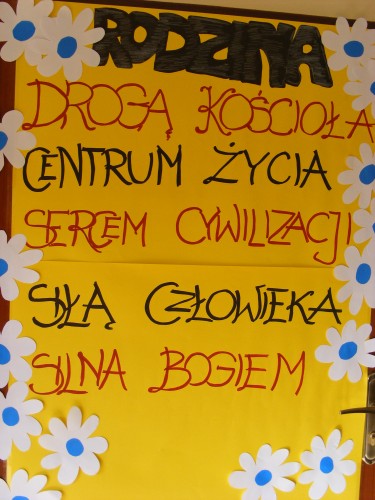 RODZINA
DROGĄ KOŚCIOŁA
CENTRUM ŻYCIA
SERCEM CYWILIZACJI
SIŁĄ CZŁOWIEKA
SILNA BOGIEM